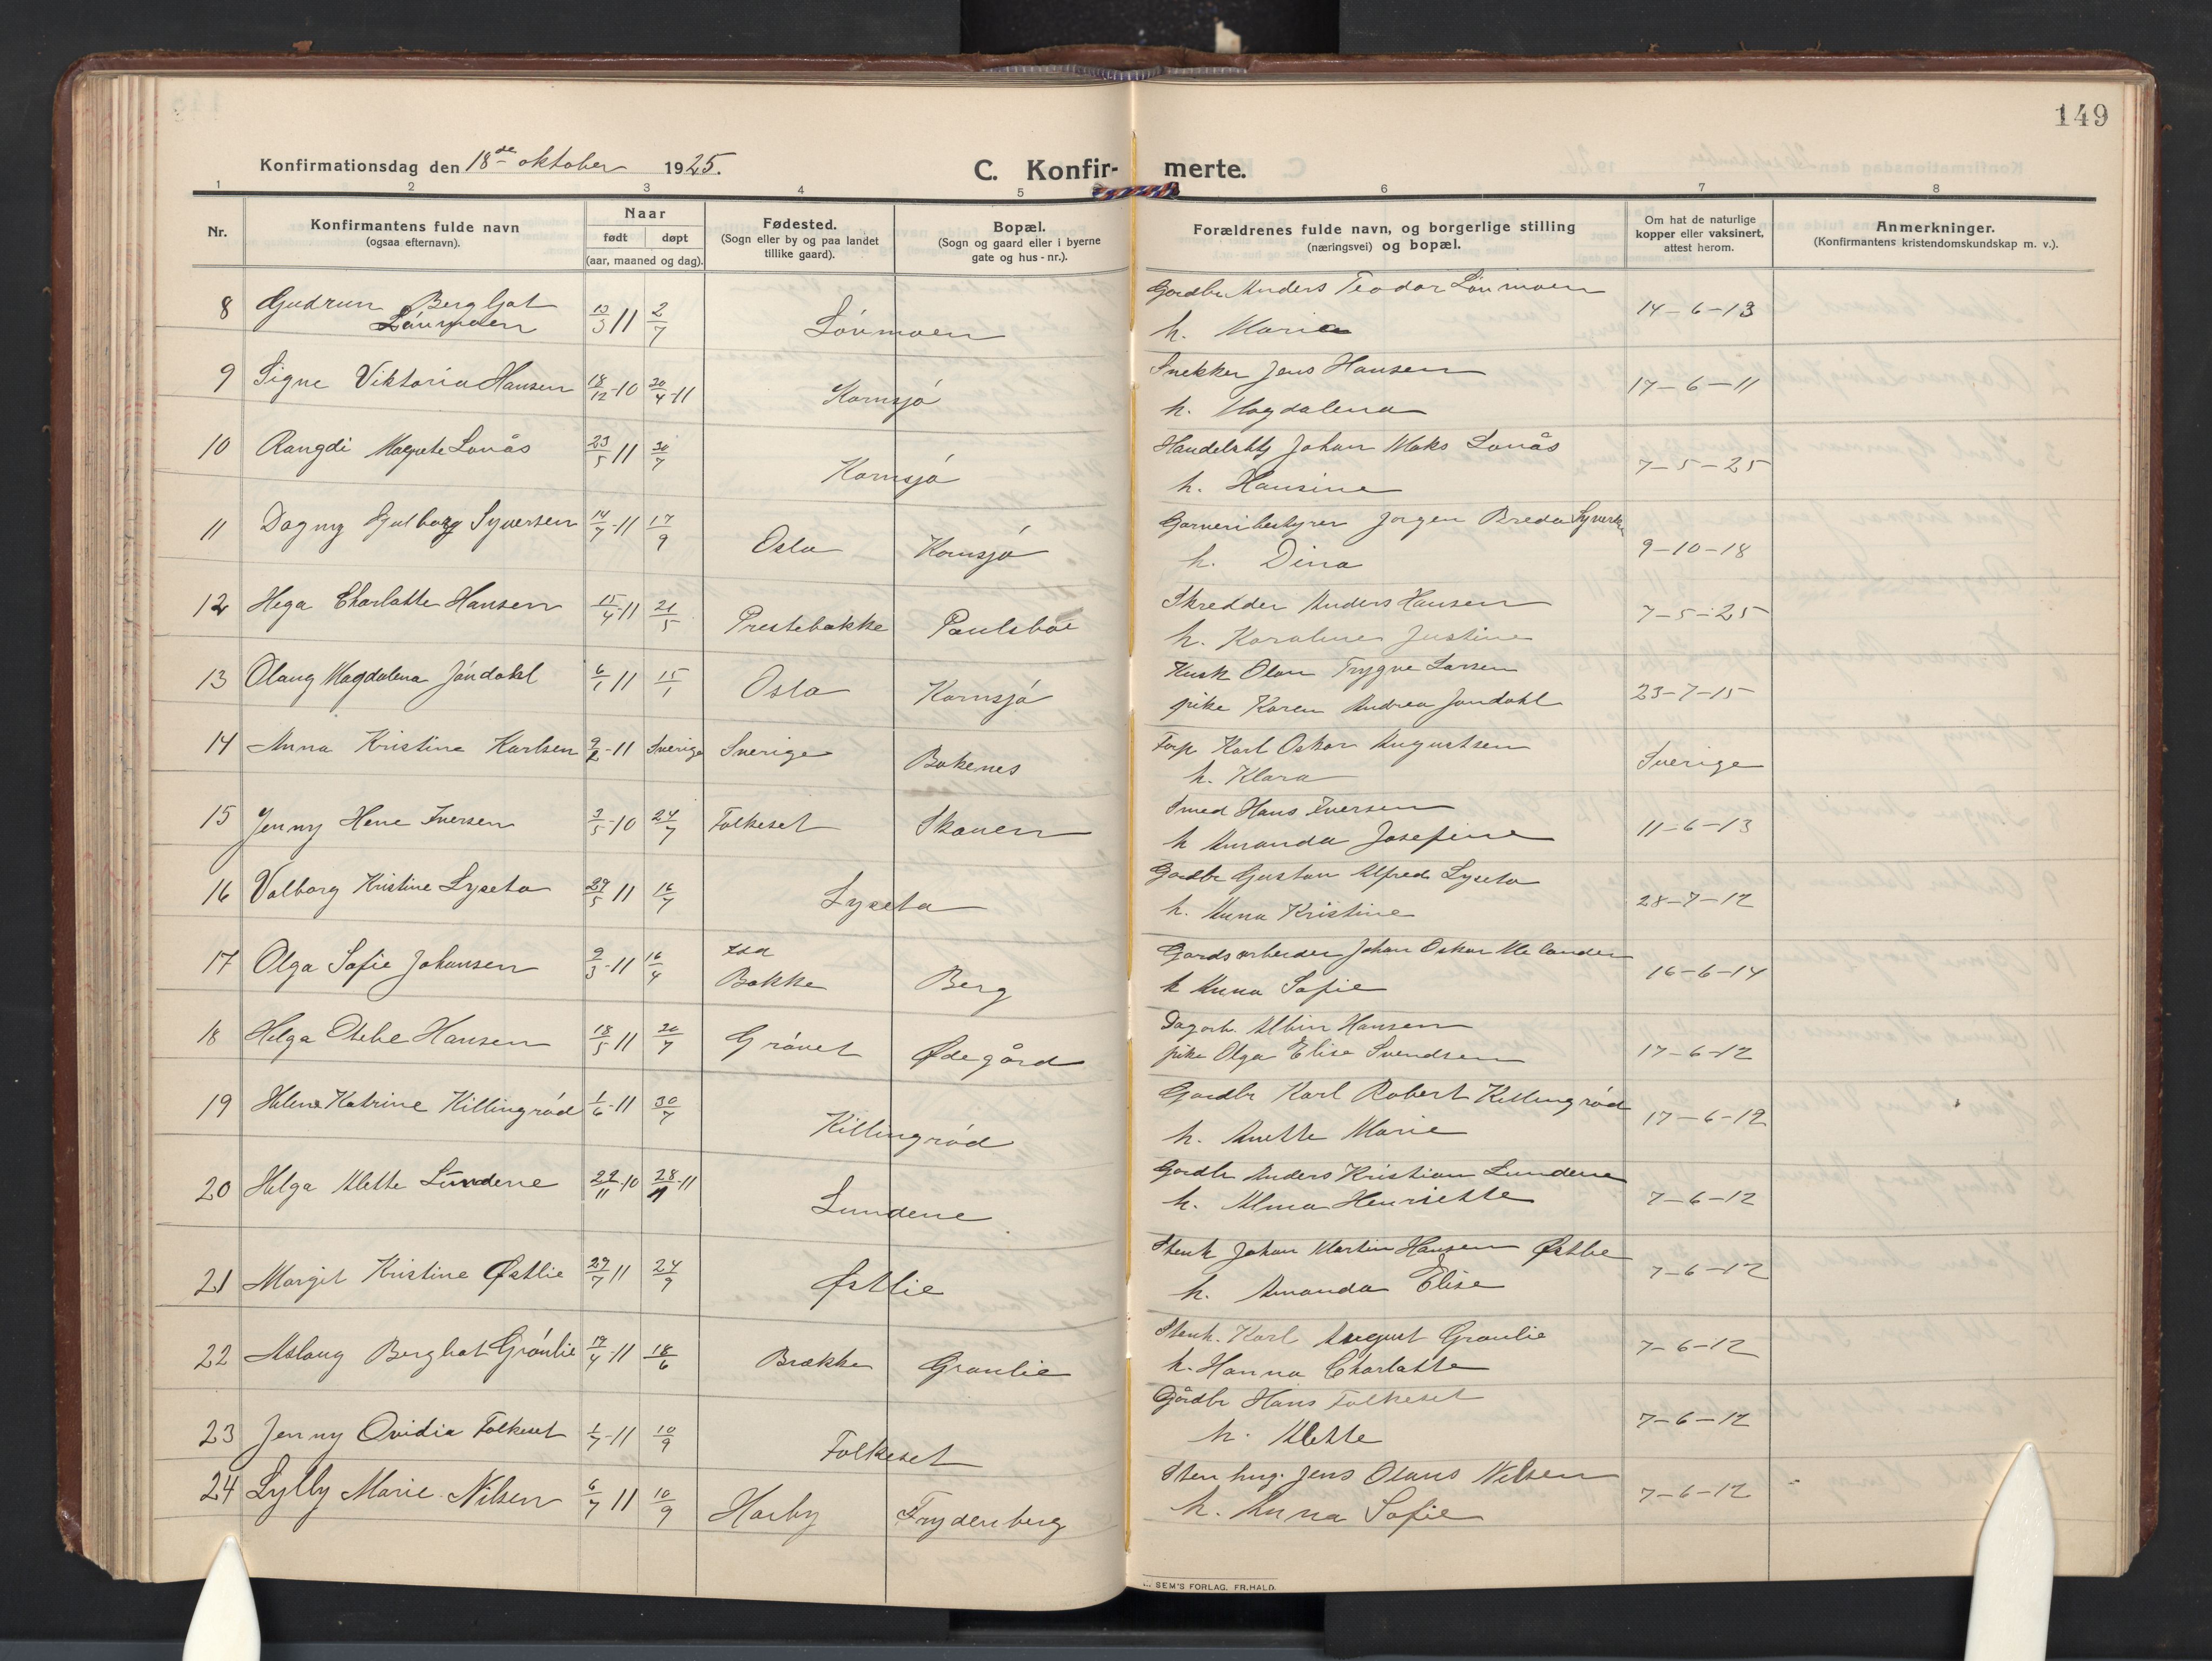 149
Konfirmationsdag den 18de oktober 1925. C. Konfir- merte.
1 2 3 4 5 6 7 8
Nr. Konfirmantens fulde navn (ogsaa efternavn). Naar født døpt (aar, maaned og dag). Fødested. (Sogn eller by og paa landet tillike gaard). Bopæl. (Sogn og gaard eller i byerne gate og hus-nr.). Forældrenes fulde navn, og borgerlige stilling (næringsvei) og bopæl. Om hat de naturlige kopper eller vaksinert, attest herom. Anmerkninger. (Konfirmantens kristendomskundskap m. v.).
8 Gudrun Bergljot Lönmoen 13/3 11 2/7 Lönmoen Gardbr Anders Teodor Lönmoen 14-6-13
h. Maria
9 Signe Viktoria Hansen 18/12-10 20/4-11 Kornsjö Snekker Jens Hansen 17-6-11
h. Magdalena
10 Rangdi Magrete Lonås 23/5 11 30/7 Kornsjö Johan Maks Lonås 7-5-25
h. Hansine
11 Dagny Syversen 14/7-11 17/9 Oslo Kornsjö Garveribestyrer Jörgen Breda 9-10-18
h. Dina
12 Hega Charlotte Hansen 15/4-11 21/5 Prestebakke Paulsboe Skredder Anders Hansen 7-5-25
h. Karoline Justine
13 Olaug Magdalena Jöndahl 6/1 11 15/1 Oslo Kornsjö Kusk Olav Trygve Larsen 23-7-15
pike Karen Andrea Jöndahl
14 Anna Kristine Karlsen 9/2-11 Sverige Sverige Bokenes Forp Karl Oskar Augustsen Sverige
h. Klara
15 Jenny Iversen 3/5-10 24/7 Folkeset Skauen Smed Hans Iversen 11-6-13
h Amanda Josefine
16 Valborg Kristine Lyseto 29/5 11 16/7 Lyseto Gardbr Gustav Alfred Lyseto 28-7-12
h. Anna Kristine
17 Olga Sofie Johansen 9/3-11 16/4 Idd Bakke Berg Gardsarbeider Johan Oskar Melander 16-6-14
h Anna Sofie
18 Helga Hansen 18/5 11 30/7 Grövet Ødegård Dagarb. Albin Hansen 17-6-12
pike Olga Elise Svendsen
19 Helene Katrine Killingröd 1/6-11 30/7 Killingröd Gardbr Karl Robert Killingröd 17-6-12
h. Anette Marie
20 Helga Alette Lundene 22/11-10 28/-11 Lundene Gardbr Anders Kristian Lundene 7-6-12
h. Alma Henriette
21 Margit Kristine Østlie 29/7 11 24/9 Østlie Stenh Johan Martin Hansen Østlie 7-6-12
h. Amanda Elise
22 Aslaug Berghot Grönlie 17/4-11 18/6 Brække Granlie Stenh. Karl August Granlie 7-6-12
h. Hanna Charlotte
23 Jenny Ovidia Folkeset 1/7-11 10/9 Folkeset Gårdbr Hans Folkeset 7-6-12
h. Alette
24 Lylly Marie Nilsen 6/7 11 10/9 Horby Frydenberg Stenhug. Jens Olaus Nilsen 7-6-12
h. Anna Sofie
SEM'S FORLAG. FR.HALD.